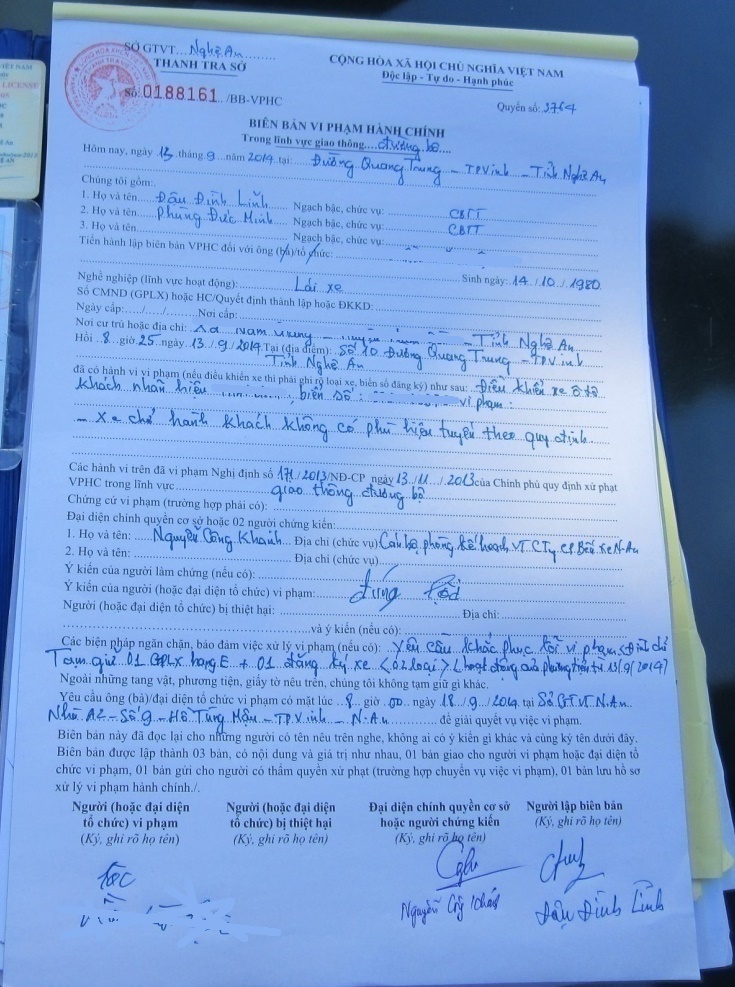 SỞ GTVT...Nghệ An......
THANH TRA SỞ
CỘNG HÒA XÃ HỘI CHỦ NGHĨA VIỆT NAM
Độc lập - Tự do - Hạnh phúc
Số: 0188161 /BB-VPHC
Quyển số: 3764
BIÊN BẢN VI PHẠM HÀNH CHÍNH
Trong lĩnh vực giao thông....đường bộ...
Hôm nay, ngày 13 tháng 9 năm 2014 tại: Đường Quang Trung - TP Vinh - Tỉnh Nghệ An
Chúng tôi gồm:
1. Họ và tên Đậu Đình Lĩnh Ngạch bậc, chức vụ: CBTT
2. Họ và tên Phùng Đức Minh Ngạch bậc, chức vụ: CBTT
3. Họ và tên Ngạch bậc, chức vụ:
Tiến hành lập biên bản VPHC đối với ông (bà)/tổ chức:
Sinh ngày: 14 / 10 / 1980
Nghề nghiệp (lĩnh vực hoạt động): Lái xe
Số CMND (GPLX) hoặc HC/Quyết định thành lập hoặc ĐKKD:
Ngày cấp:..../..../..... Nơi cấp:
Nơi cư trú hoặc địa chỉ: Xã Nam - Tỉnh Nghệ An
Hồi 8 giờ 25 ngày 13 / 9 / 2014 Tại (địa điểm): Số 10 Đường Quang Trung - TP Vinh
Tỉnh Nghệ An
đã có hành vi vi phạm (nếu điều khiển xe thì phải ghi rõ loại xe, biển số đăng ký) như sau: Điều khiển xe ô tô
khách nhãn hiệu , biển số: vi phạm:
- Xe chở hành khách không có phù hiệu tuyến theo quy định.
Các hành vi trên đã vi phạm Nghị định số 171/2013/NĐ-CP ngày 13/11/2013 của Chính phủ quy định xử phạt
VPHC trong lĩnh vực giao thông đường bộ
Chứng cứ vi phạm (trường hợp phải có):
Đại diện chính quyền cơ sở hoặc 02 người chứng kiến:
1. Họ và tên: Nguyễn Công Khanh Địa chỉ (chức vụ) Cán bộ phòng kế hoạch VT CTy CP Bến xe N-An
2. Họ và tên: Địa chỉ (chức vụ)
Ý kiến của người làm chứng (nếu có):
Ý kiến của người (hoặc đại diện tổ chức) vi phạm: đúng lỗi
Người (hoặc đại diện tổ chức) bị thiệt hại: Địa chỉ:
và ý kiến (nếu có):
Các biện pháp ngăn chặn, bảo đảm việc xử lý vi phạm (nếu có): Yêu cầu khắc phục lỗi vi phạm, đình chỉ
Tạm giữ 01 GPLX hạng E + 01 đăng ký xe <02 loại> (hoạt động của phương tiện từ 13/9/2014)
Ngoài những tang vật, phương tiện, giấy tờ nêu trên, chúng tôi không tạm giữ gì khác.
Yêu cầu ông (bà)/đại diện tổ chức vi phạm có mặt lúc 8 giờ 00 ngày 18 / 9 / 2014 tại Sở GTVT N.An
Nhà A2 - Số 9 - Hồ Tùng Mậu - TP. Vinh - N.An để giải quyết vụ việc vi phạm.
Biên bản này đã đọc lại cho những người có tên nêu trên nghe, không ai có ý kiến gì khác và cùng ký tên dưới đây.
Biên bản được lập thành 03 bản, có nội dung và giá trị như nhau, 01 bản giao cho người vi phạm hoặc đại diện tổ
chức vi phạm, 01 bản gửi cho người có thẩm quyền xử phạt (trường hợp chuyển vụ việc vi phạm), 01 bản lưu hồ sơ
xử lý vi phạm hành chính./.
Người (hoặc đại diện Người (hoặc đại diện Đại diện chính quyền cơ sở Người lập biên bản
tổ chức) vi phạm tổ chức) bị thiệt hại hoặc người chứng kiến (Ký, ghi rõ họ tên)
(Ký, ghi rõ họ tên) (Ký, ghi rõ họ tên) (Ký, ghi rõ họ tên)
Đậu Đình Lĩnh